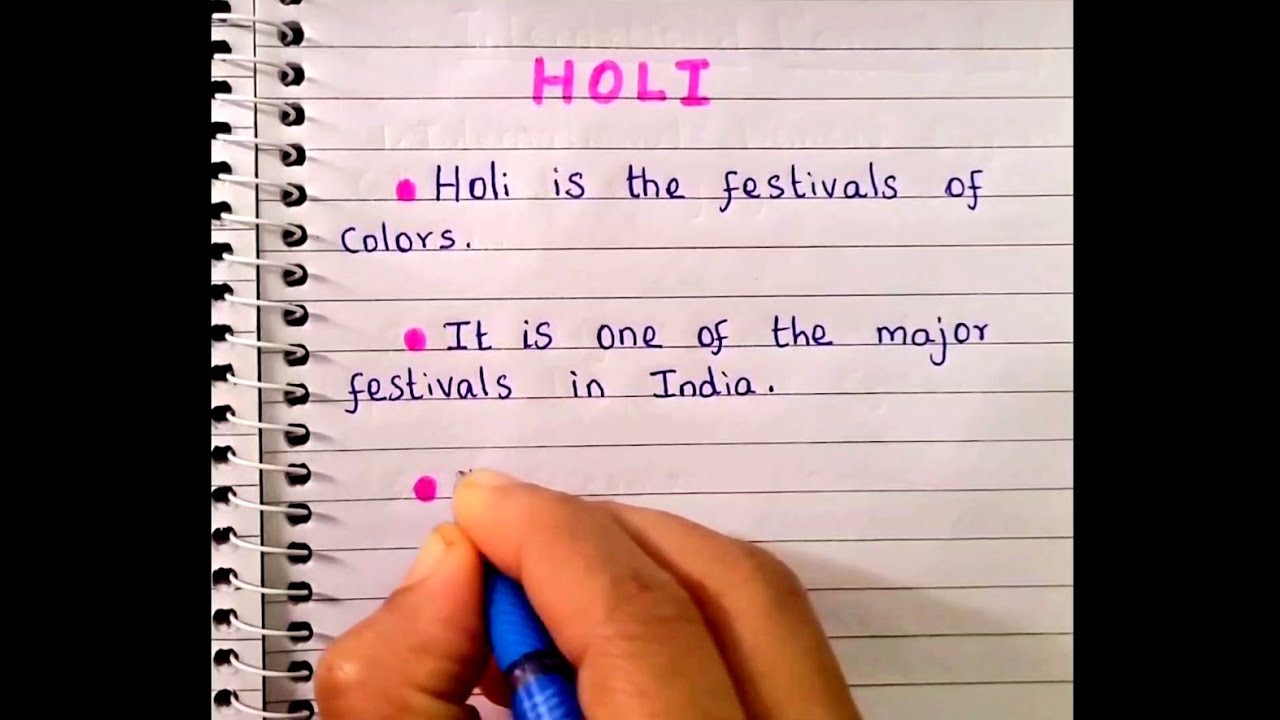 HOLI
Holi is the festivals of
colors.
It is one of the major
festivals in India.